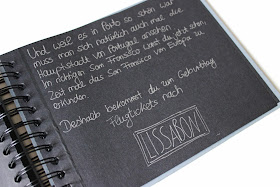 Und weil es in Porto so schön war
muss man sich natürlich auch mal die
Hauptstadt von Portugal ansehen
Im richtigen San Francisco warst du jetzt schon,
Zeit mal das San Francisco von Europa zu
erkunden.
Deshalb bekommst du zum Geburtstag
Flugtickets nach
LISSABON